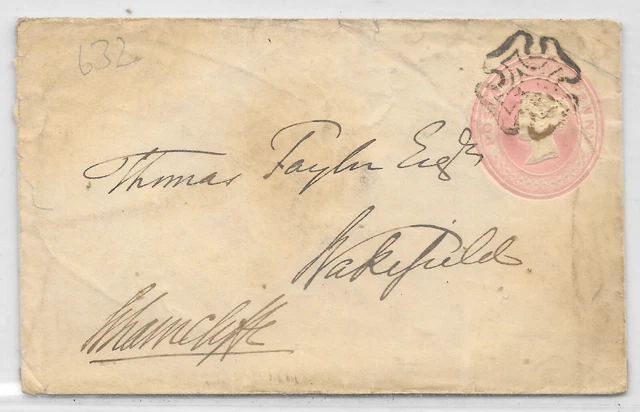 632
Thomas Taylor Esqr
Wakefield
Wharncliffe